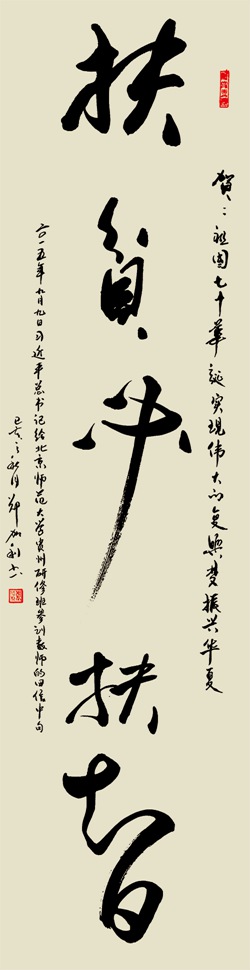 贺:祖国七十华诞实现伟大的复兴梦振兴华夏
扶贫必扶智
二〇一五年九月九日习近平总书记给北京师范大学贵州研修班参训教师的回信中句
己亥之秋月